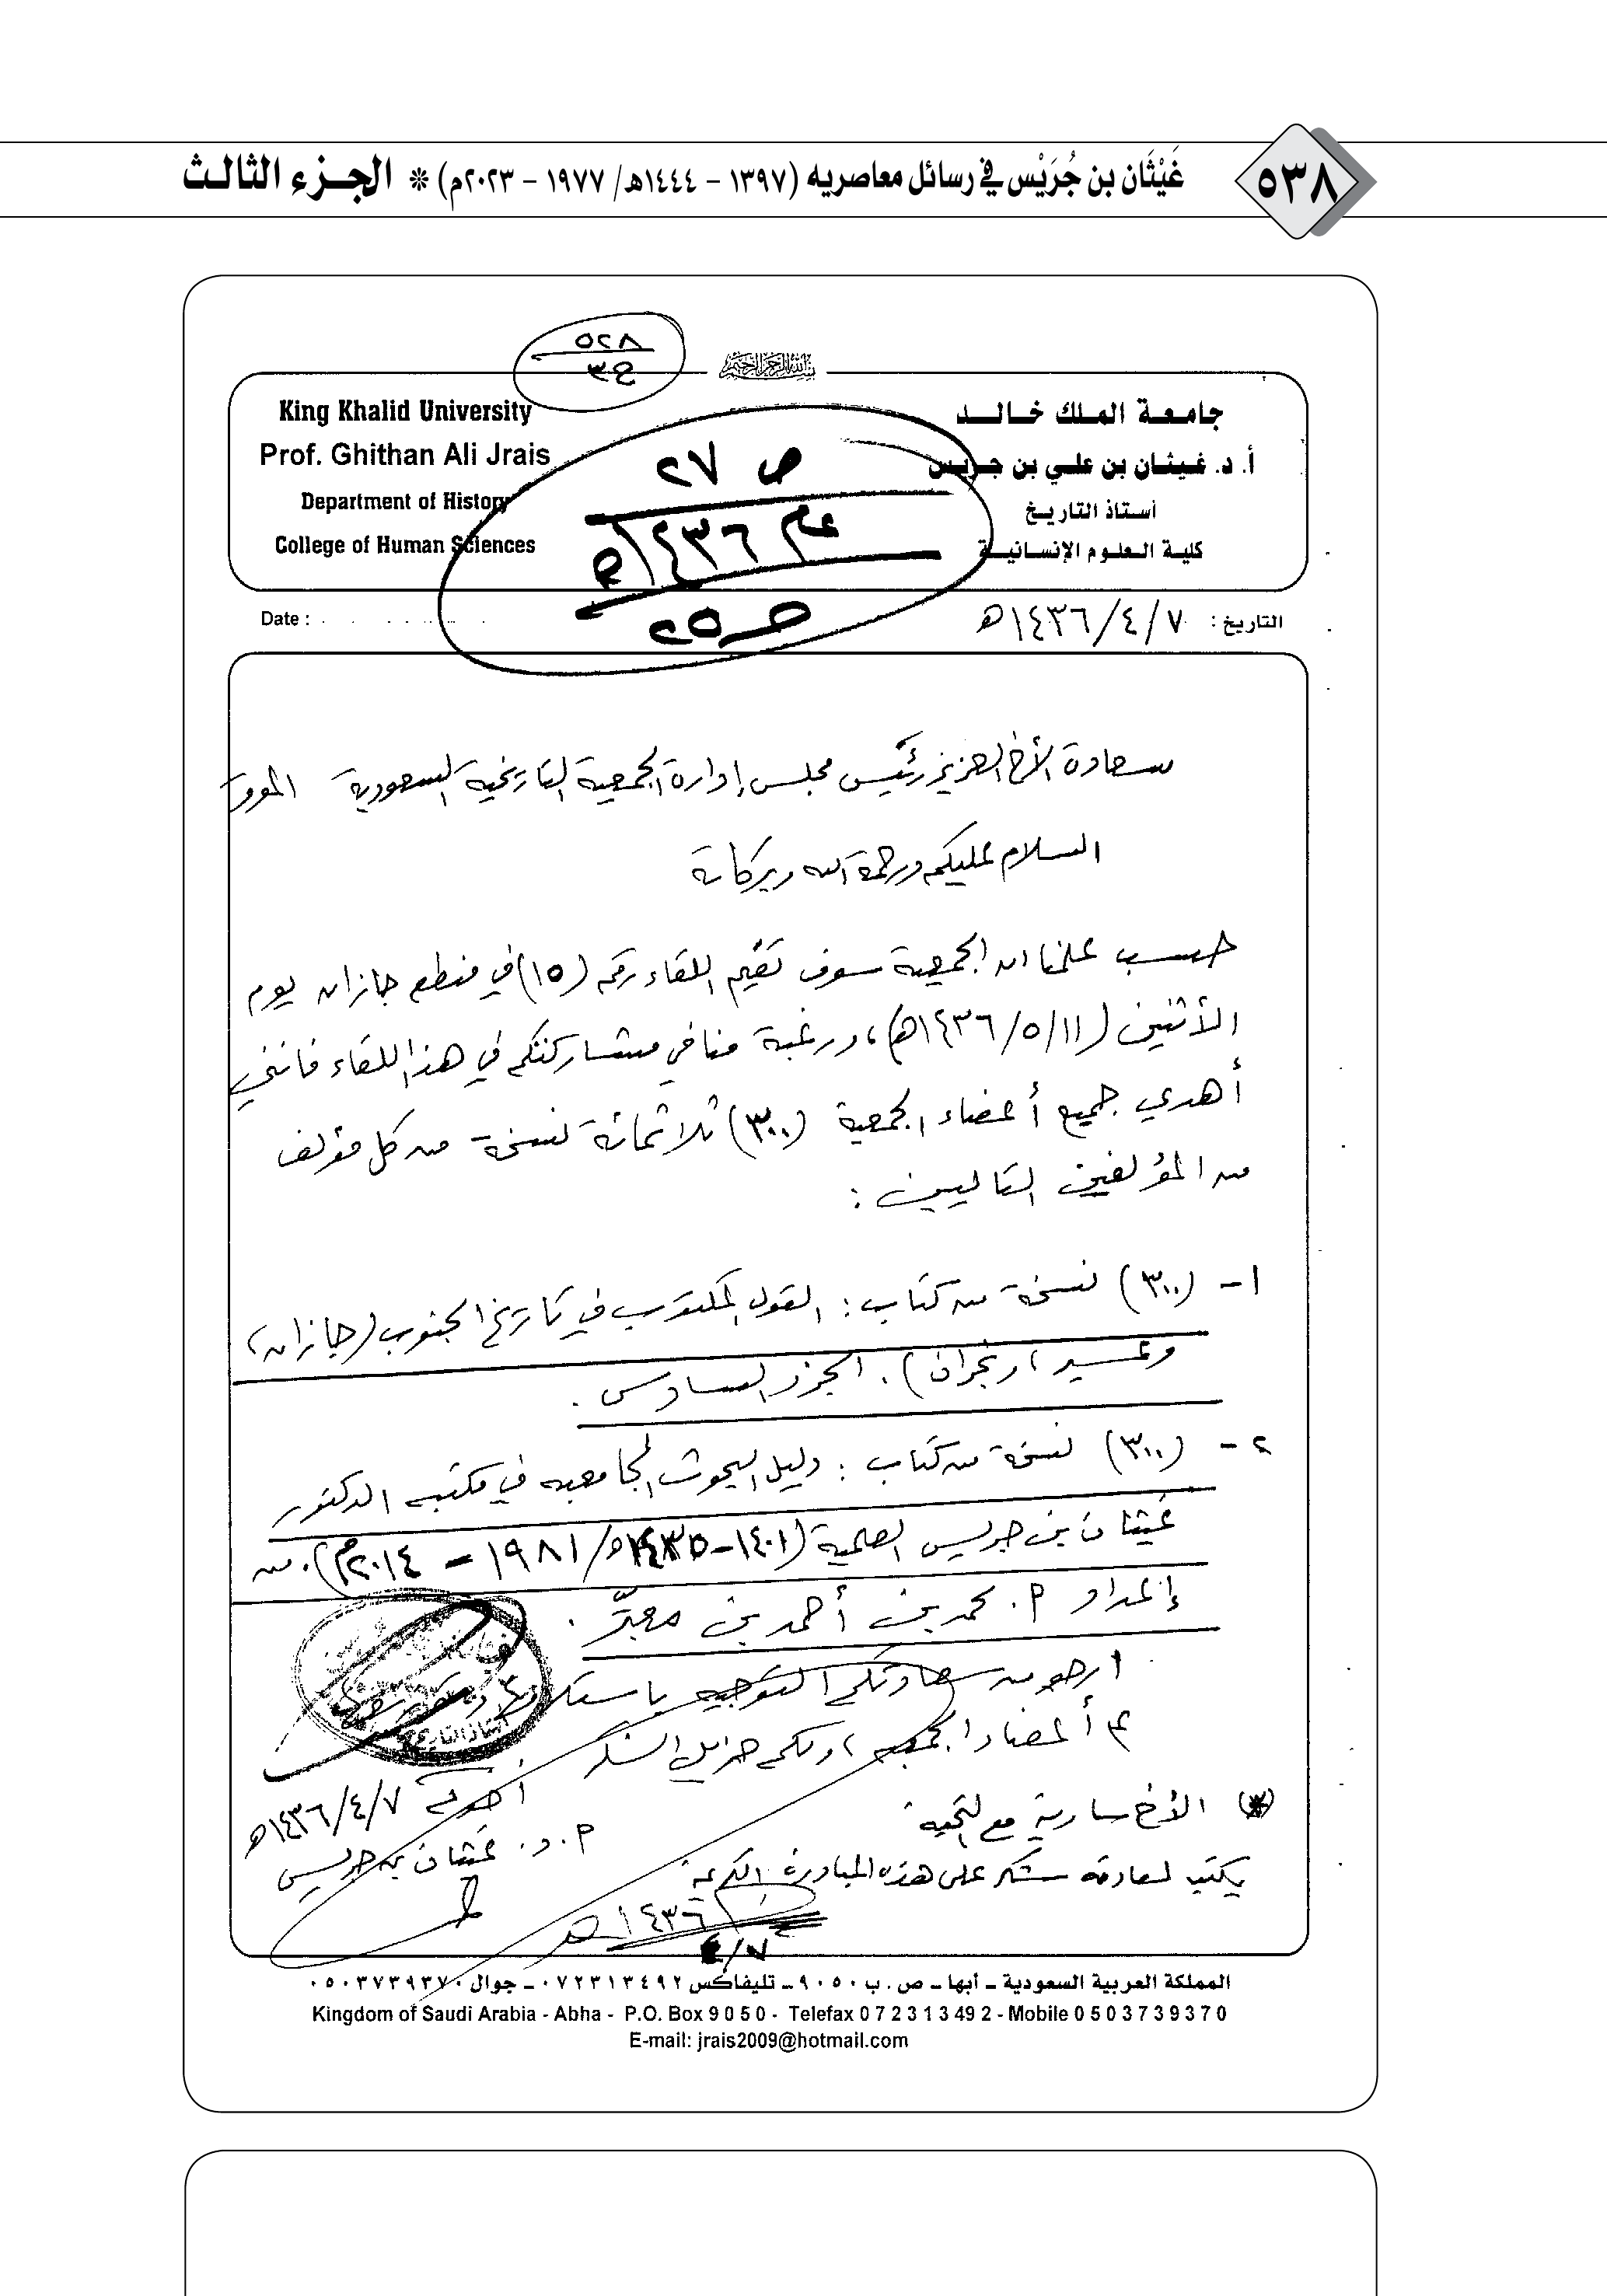 ٥٣٨
غَيْثَان بن جُرَيْس في رسائل معاصريه (١٣٩٧ - ١٤٤٤هـ/ ١٩٧٧ - ٢٠٢٣م) * الجزء الثالث
٥٢٨
ج٣
جامعة الملك خالد
أ. د. غيثان بن علي بن جريس
أستاذ التاريخ
كلية العلوم الإنسانية
King Khalid University
Prof. Ghithan Ali Jrais
Department of History
College of Human Sciences
ص ٢٧
عام ١٤٣٦هـ
ص ٢٥
التاريخ: ١٤٣٦/٤/٧هـ
Date :
سعادة الأخ العزيز رئيس مجلس إدارة الجمعية التاريخية السعودية الموقر
السلام عليكم ورحمة الله وبركاته
حسب علمنا ان الجمعية سوف تقيم اللقاء رقم (١٥) في منطقة جازان يوم
الأثنين (١٤٣٦/٥/١١هـ)، ورغبة منا في مشاركتكم في هذا اللقاء فانني
أهدي جميع أعضاء الجمعية (٣٠٠) ثلاثمائة نسخة من كل مؤلف
من المؤلفين التاليين :
١- (٣٠٠) نسخة من كتاب : القول المكتوب في تاريخ الجنوب (جازان،
وعسير، ونجران). الجزء السادس .
٢- (٣٠٠) نسخة من كتاب : دليل البحوث الجامعية في مكتبة الدكتور
غيثان بن جريس العلمية (١٤٠١-١٤٣٥هـ/ ١٩٨١ - ٢٠١٤م). من
إعداد م. محمد بن أحمد بن معبّر .
ارجو من سعادتكم التوجيه باستلامها
أعضاء الجمعية، ولكم جزيل الشكر
أخوكم ١٤٣٦/٤/٧هـ
أ. د. غيثان بن جريس
(*) الأخ سارية مع التحية
يكتب لسعادته شكر على هذه المبادرة الكريمة
١٤٣٦هـ
٤/٧
المملكة العربية السعودية - أبها - ص . ب ٩٠٥٠ - تليفاكس ٠٧٢٣١٣٤٩٢ - جوال ٠٥٠٣٧٣٩٣٧٠
Kingdom of Saudi Arabia - Abha - P.O. Box 9 0 5 0 - Telefax 0 7 2 3 1 3 49 2 - Mobile 0 5 0 3 7 3 9 3 7 0
E-mail: jrais2009@hotmail.com